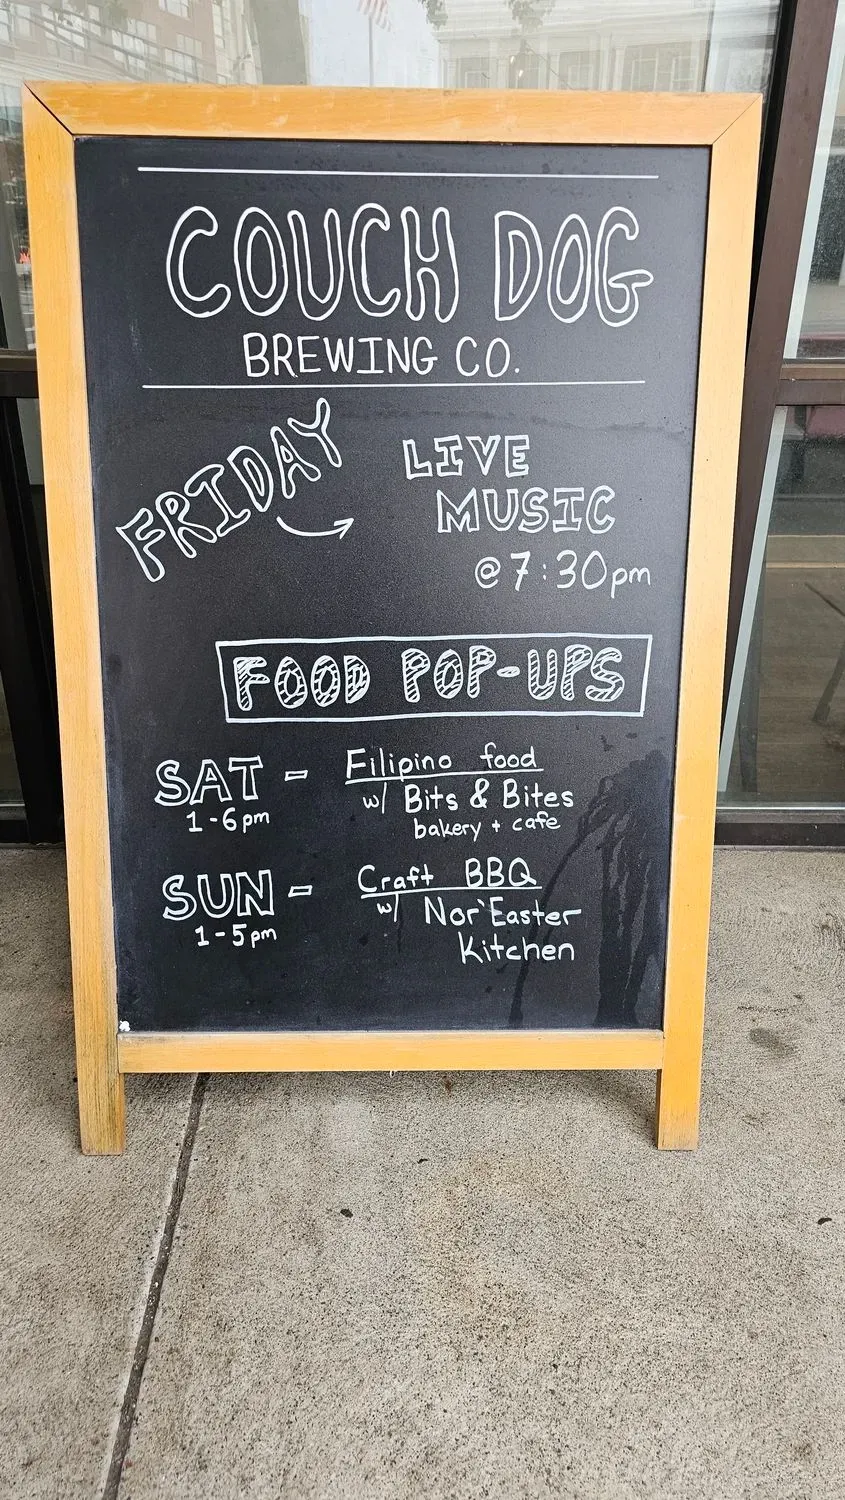 COUCH DOG
BREWING CO.
FRIDAY
LIVE
MUSIC
@ 7:30pm
FOOD POP-UPS
SAT - Filipino food
1-6pm w/ Bits & Bites
bakery + cafe
SUN - Craft BBQ
1-5pm w/ Nor'Easter
Kitchen